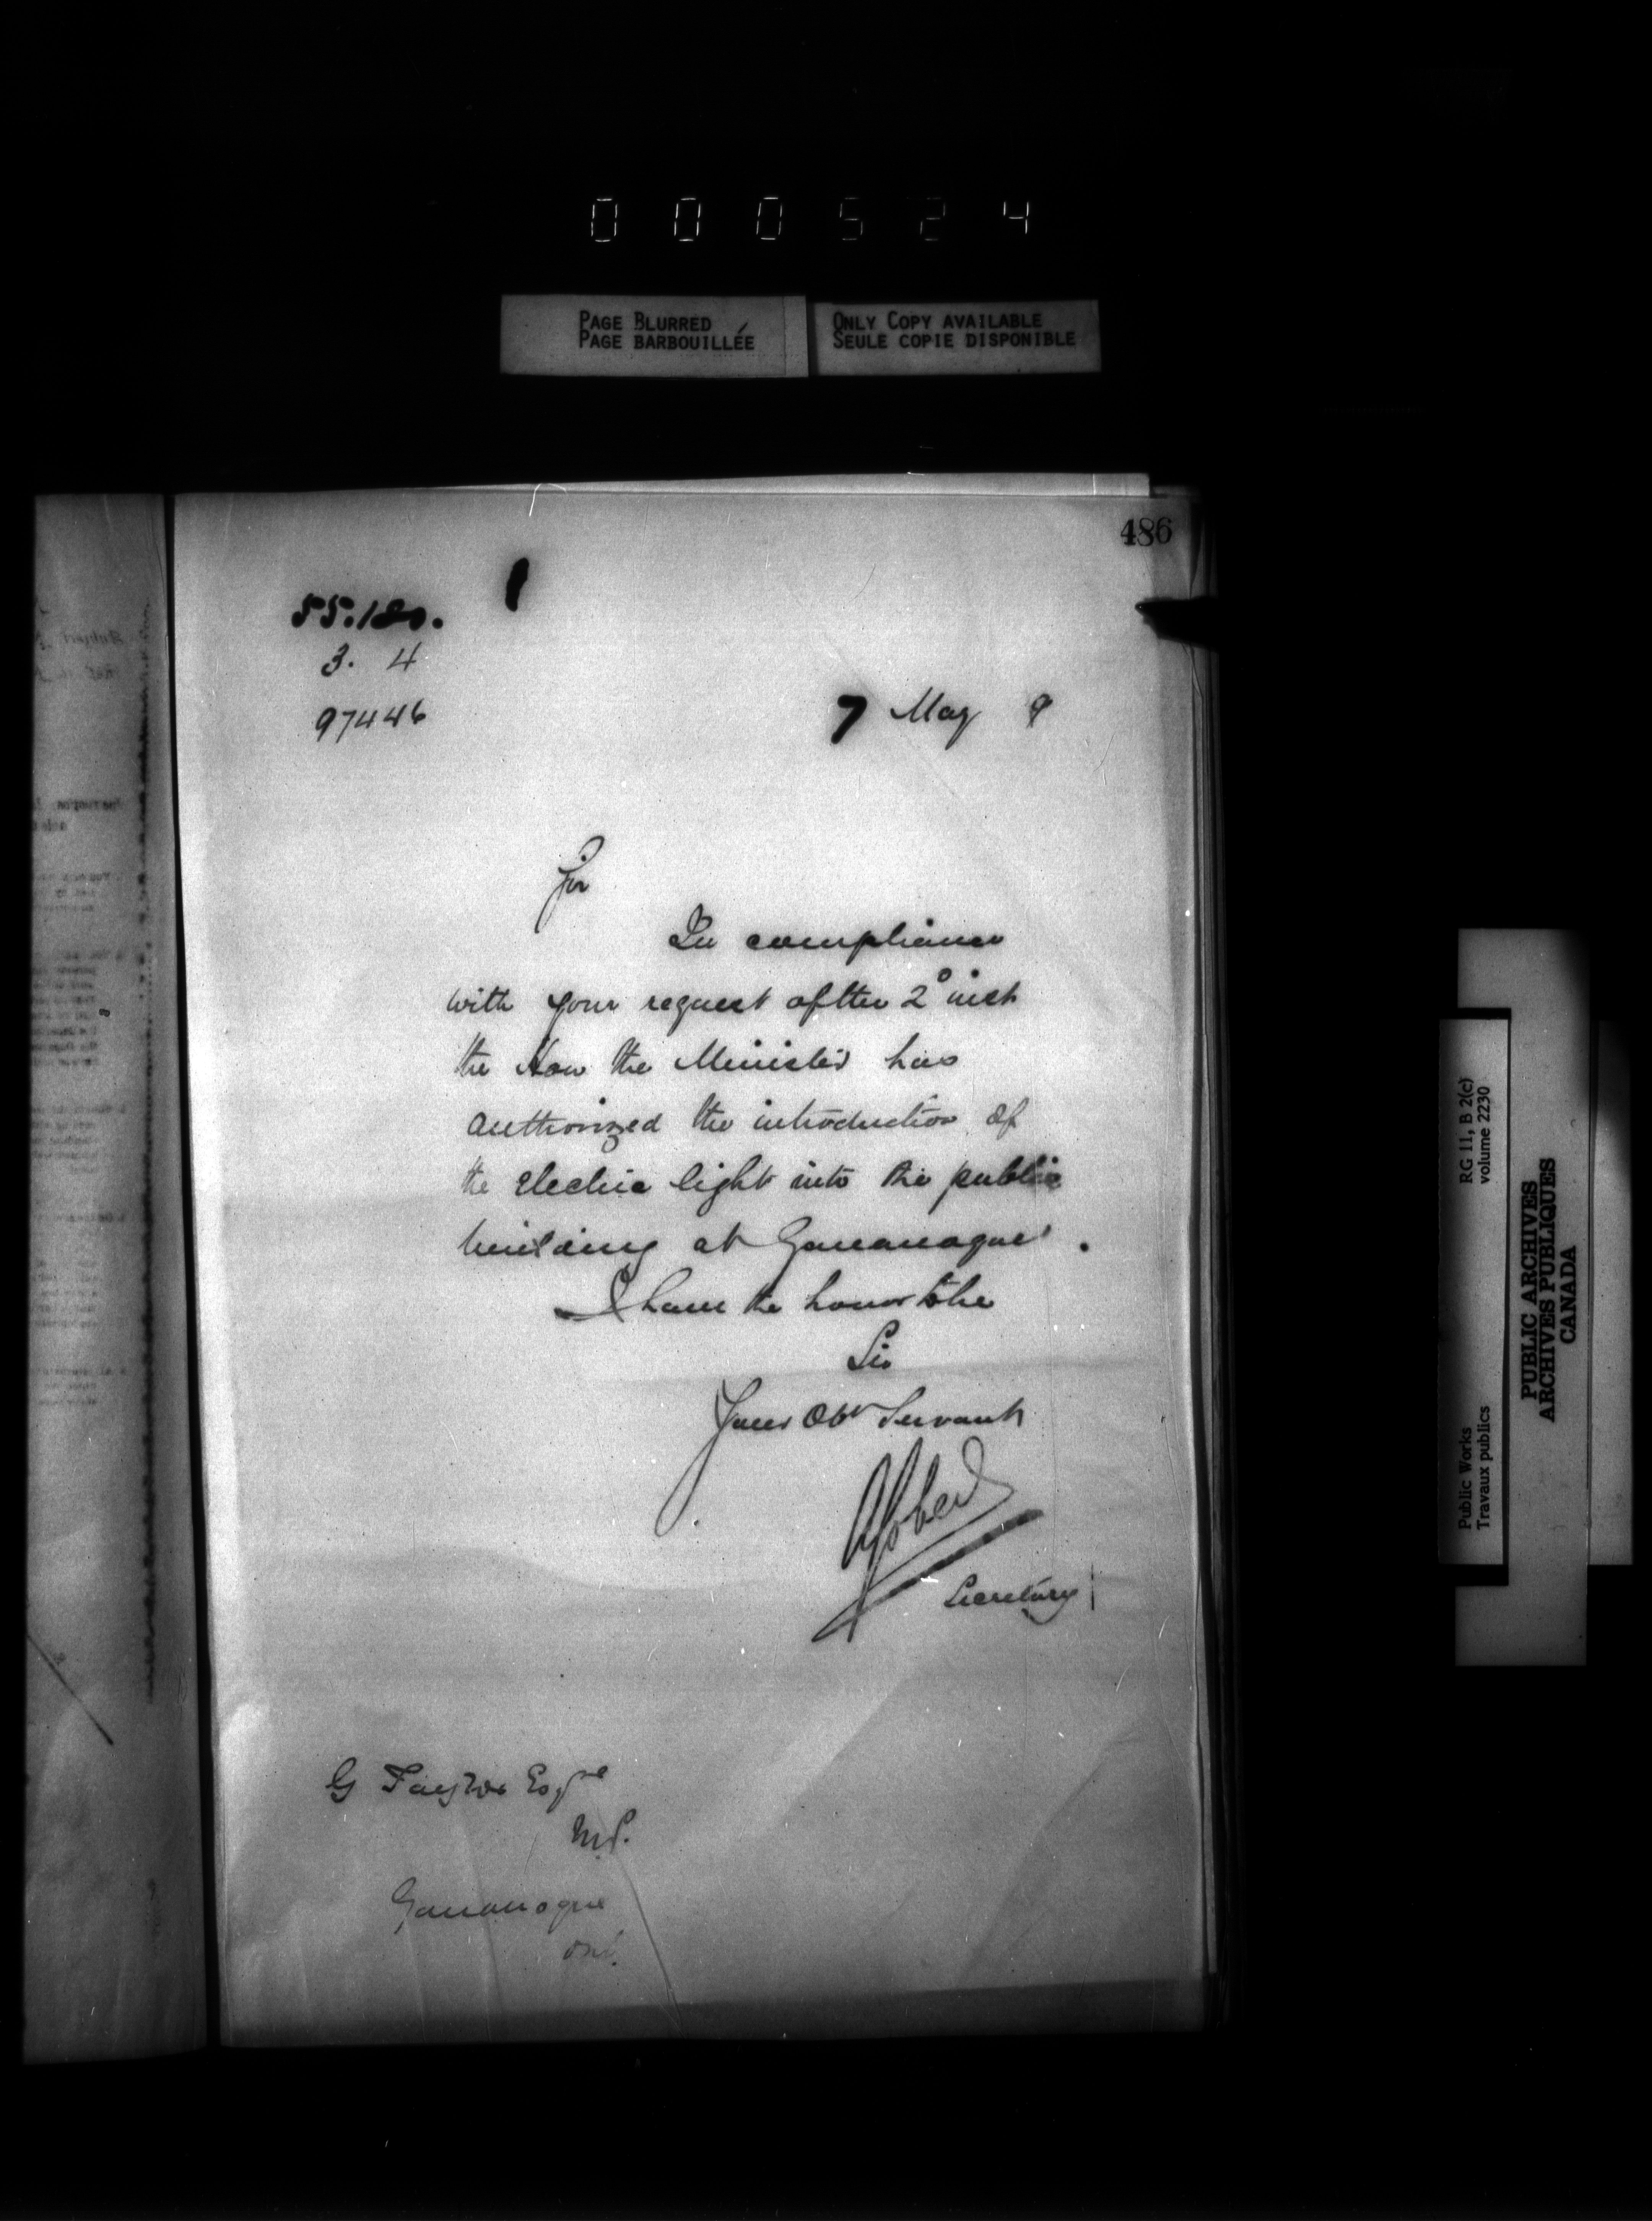 000524
PAGE BLURRED
PAGE BARBOUILLÉE
ONLY COPY AVAILABLE
SEULE COPIE DISPONIBLE
486
55.180.
3. 4
97446
7 May 9
Sir
In compliance
with your request of the 2º inst
the Hon the Minister has
authorized the introduction of
the electric light into the public
building at Gananoque.
I have the honor to be
Sir
Your Obt Servant
Secretary
G Taylor Esqre
M.P.
Gananoque
Ont.
Public Works
Travaux publics
RG 11, B 2(c)
volume 2230
PUBLIC ARCHIVES
ARCHIVES PUBLIQUES
CANADA